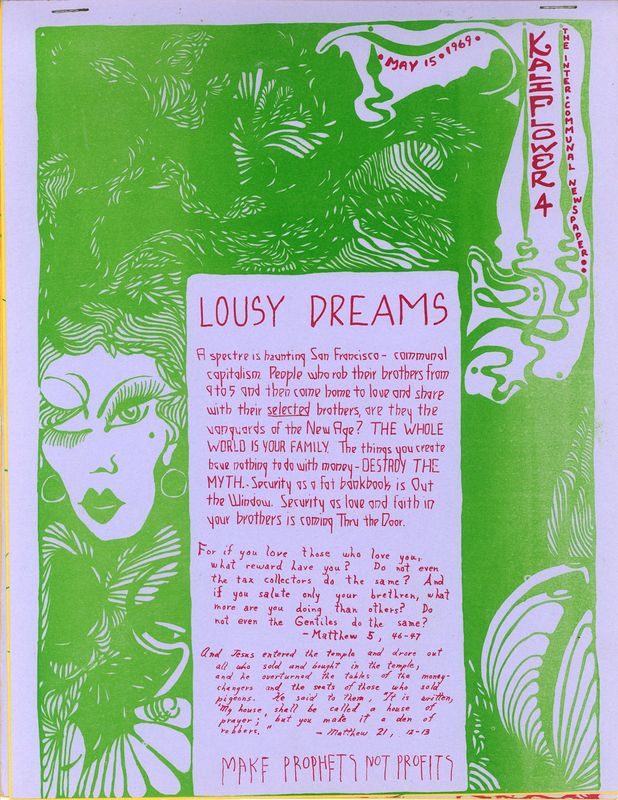 MAY 15 • 1969 •
KALIFLOWER 4
THE INTER • COMMUNAL NEWSPAPER • •
LOUSY DREAMS
A spectre is haunting San Francisco - communal
capitalism. People who rob their brothers from
9 to 5 and then come home to love and share
with their selected brothers, are they the
vanguards of the New Age? THE WHOLE
WORLD IS YOUR FAMILY. The things you create
have nothing to do with money - DESTROY THE
MYTH. Security as a fat bankbook is Out
the Window. Security as love and faith in
your brothers is coming Thru the Door.
For if you love those who love you,
what reward have you? Do not even
the tax collectors do the same? And
if you salute only your brethren, what
more are you doing than others? Do
not even the Gentiles do the same?
- Matthew 5, 46-47
And Jesus entered the temple and drove out
all who sold and bought in the temple,
and he overturned the tables of the money-
changers and the seats of those who sold
pigeons. He said to them, "It is written,
'My house shall be called a house of
prayer;' but you make it a den of
robbers."
- Matthew 21, 12-13
MAKE PROPHETS NOT PROFITS